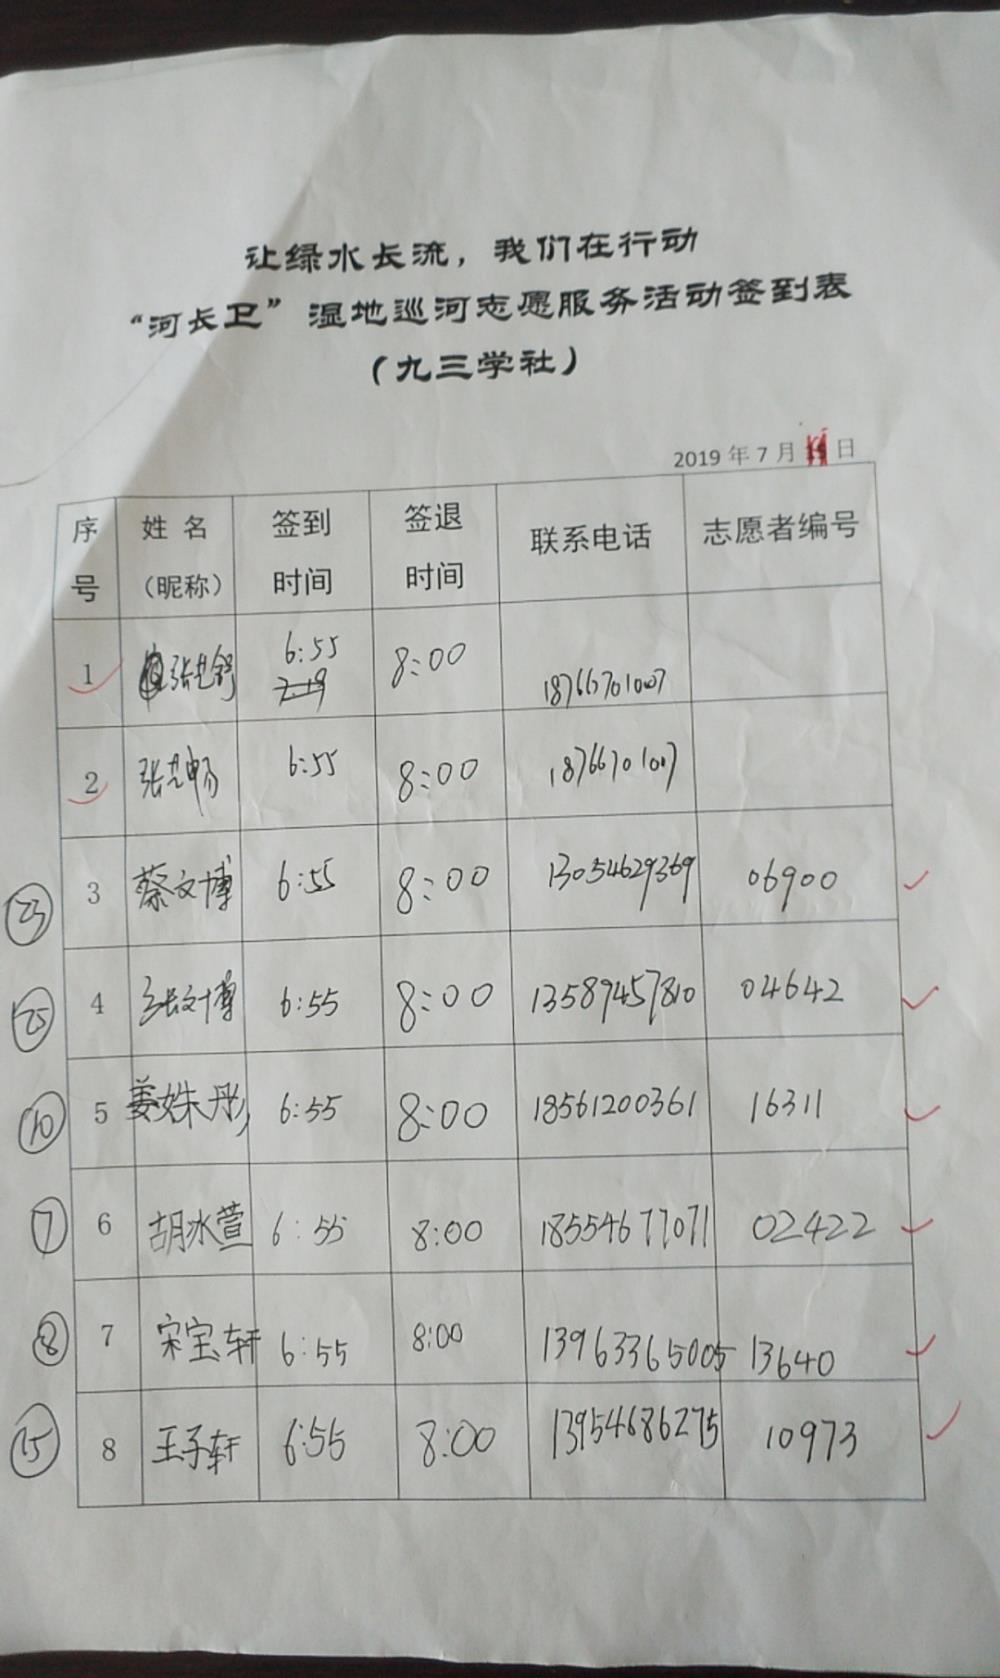 让绿水长流，我们在行动
“河长卫”湿地巡河志愿服务活动签到表
（九三学社）
2019 年 7 月 日
序号 姓 名（昵称） 签到时间 签退时间 联系电话 志愿者编号
1 张艺舒 6:55 8:00 18766701007
2 张艺畅 6:55 8:00 18766701007
23 3 蔡文博 6:55 8:00 13054629369 06900
25 4 张文博 6:55 8:00 13589457810 04642
10 5 姜姝彤 6:55 8:00 18561200361 16311
7 6 胡冰萱 6:55 8:00 18554677071 02422
8 7 宋宝轩 6:55 8:00 13963365005 13640
15 8 王子轩 6:55 8:00 13954686275 10973